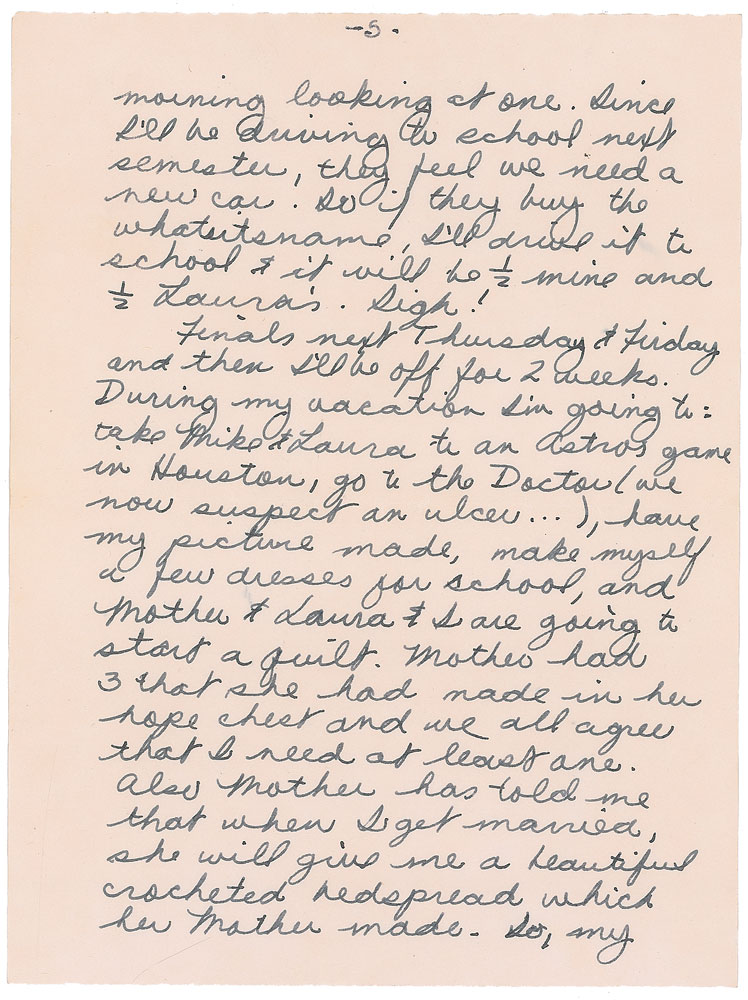 -5-
morning looking at one. Since
I'll be driving to school next
semester, they feel we need a
new car! So if they buy the
whatsitsname, I'll drive it to
school & it will be ½ mine and
½ Laura's. Sigh!
Finals next Thursday & Firday
and then I'll be off for 2 weeks.
During my vacation I'm going to:
take Mike & Laura to an Astros game
in Houston, go to the Doctor (we
now suspect an ulcer...), have
my picture made, make myself
a few dresses for school, and
Mother & Laura & I are going to
start a quilt. Mother had
3 that she had made in her
hope chest and we all agree
that I need at least one.
Also Mother has told me
that when I get married,
she will give me a beautiful
crocheted bedspread which
her Mother made. So, my